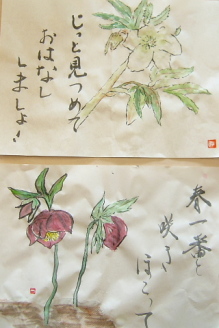 じっと見つめて
おはなし
しましょう
春一番と
咲き
ほこって